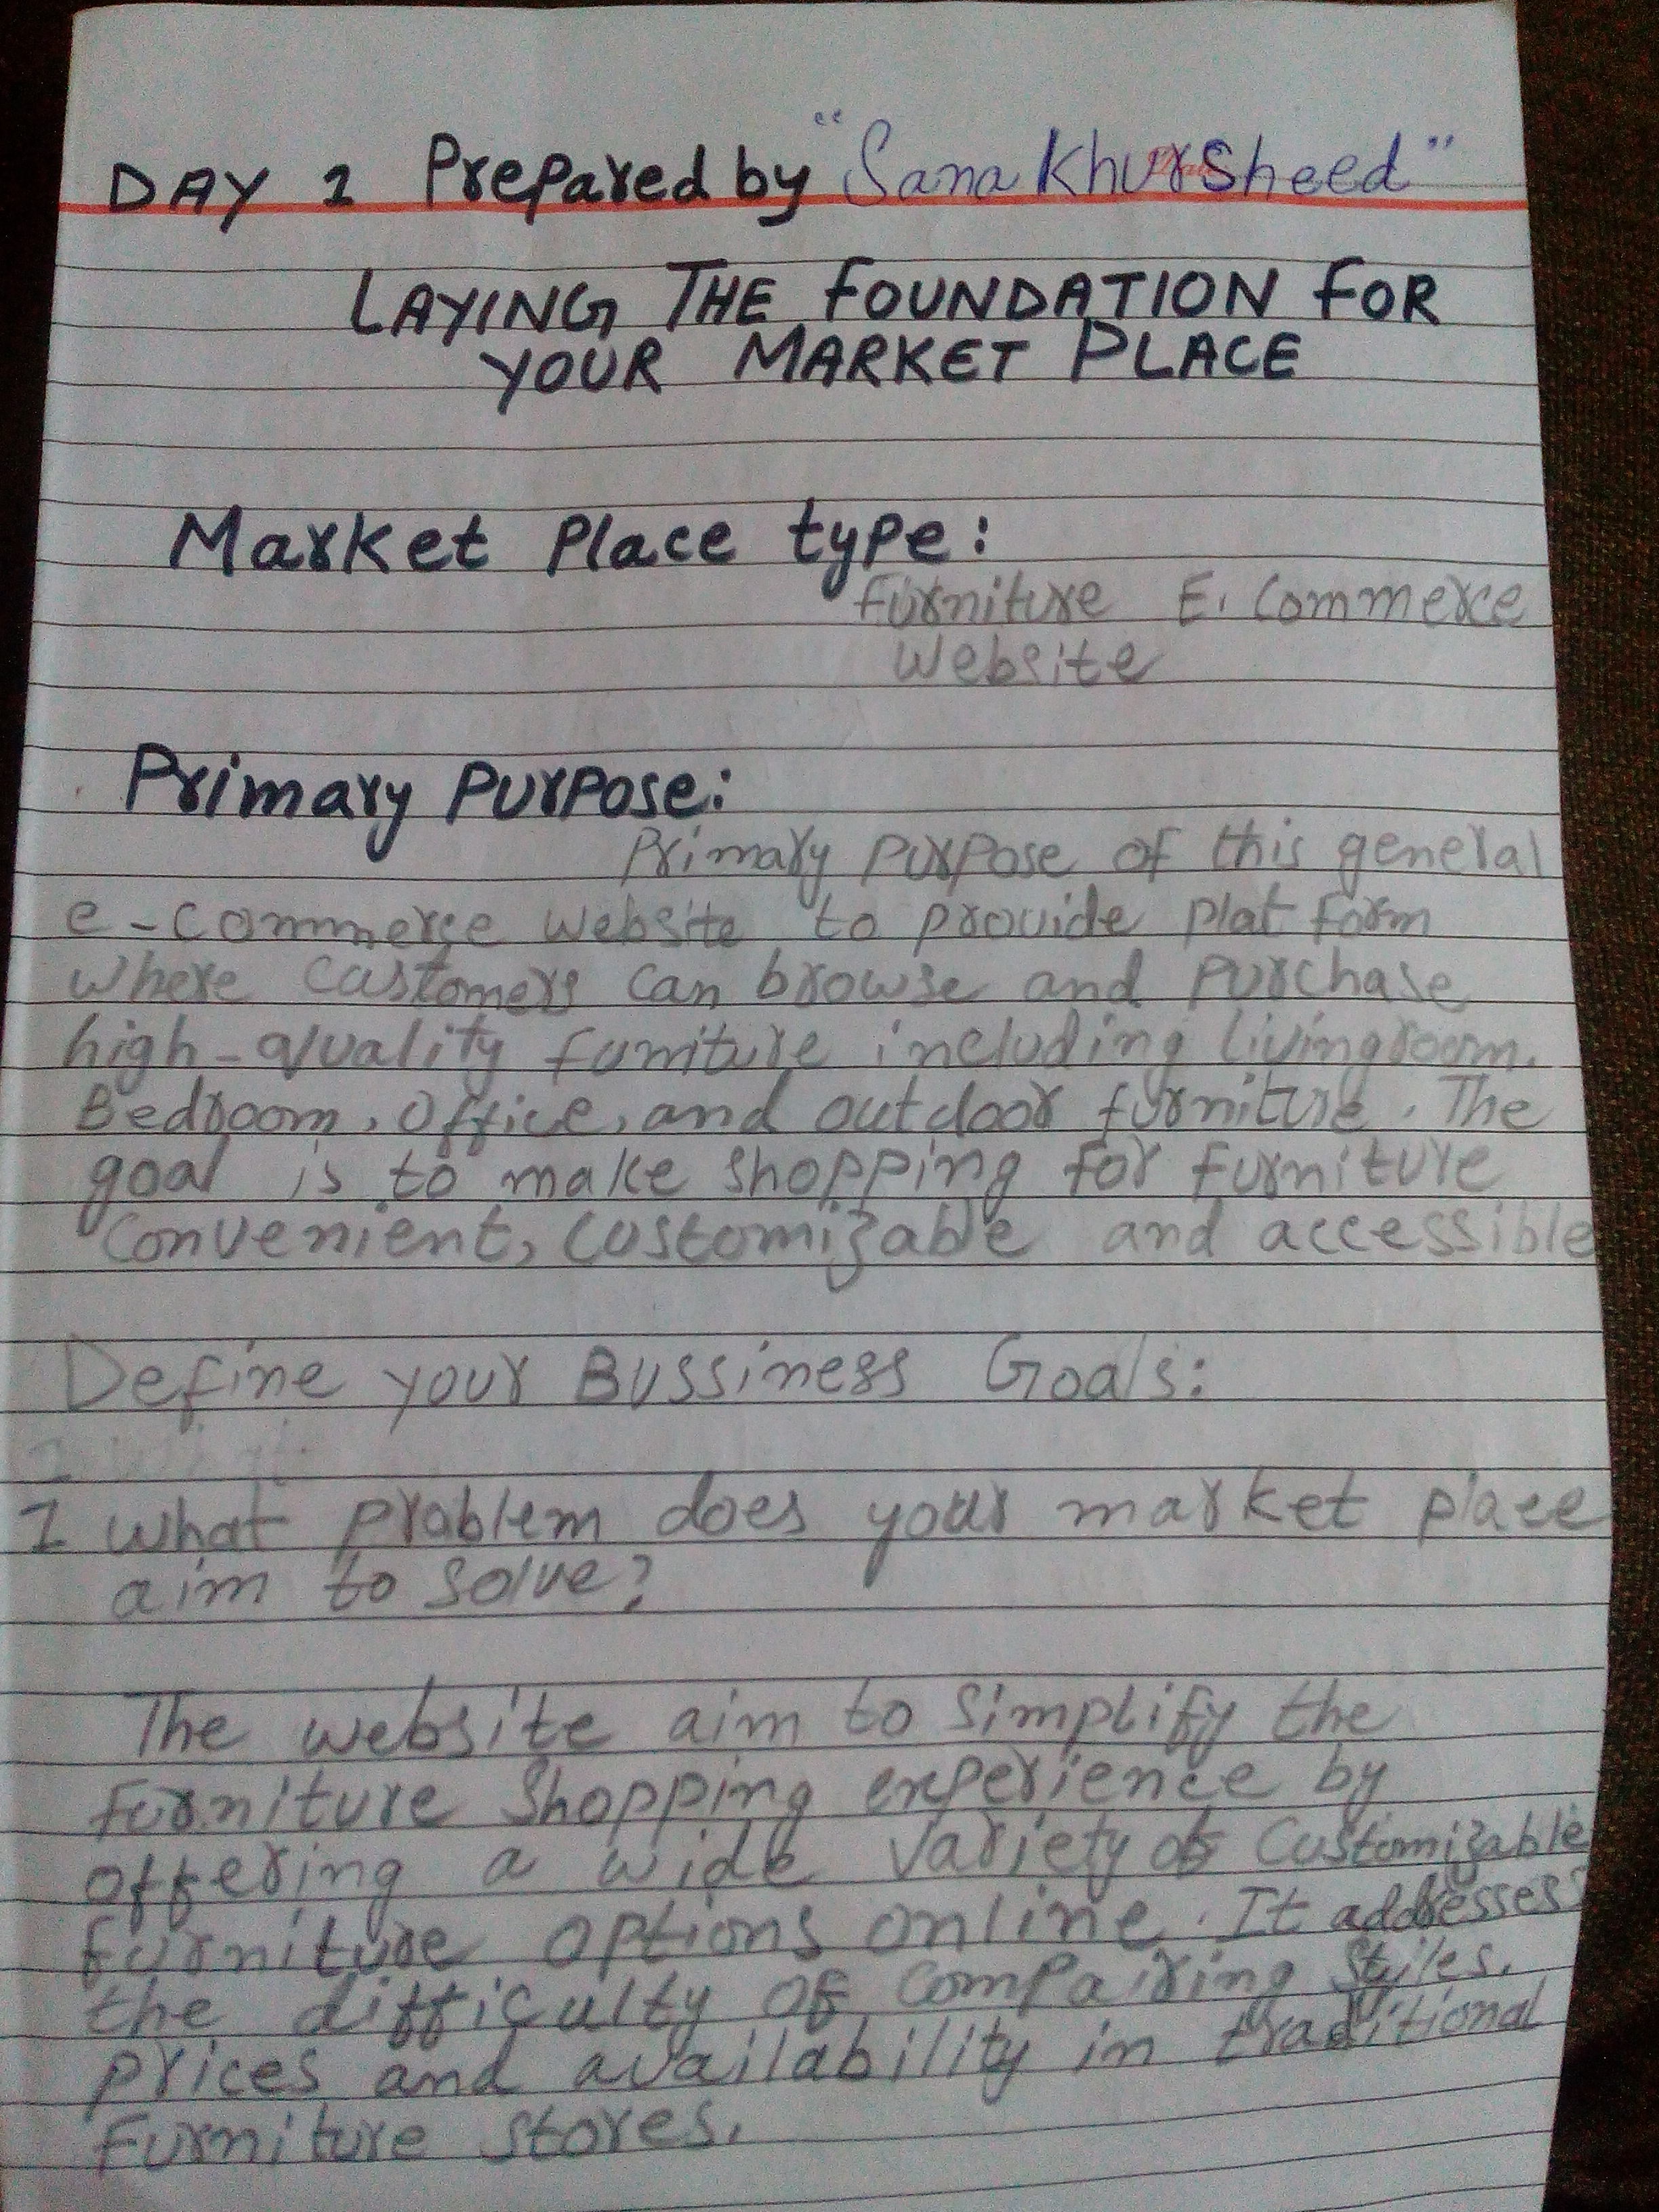 DAY 1 Prepared by "Sana Khursheed"
LAYING THE FOUNDATION FOR
YOUR MARKET PLACE
Market Place type:
Furniture E. Commerce
Website
Primary Purpose:
Primary Purpose of this general
e-commerce website to provide plat form
where customers can browse and purchase
high-quality furniture including livingroom,
Bedroom, office, and outdoor furniture. The
goal is to make shopping for furniture
Convenient, customizable and accessible
Define your Bussiness Goals:
1 What problem does your market place
aim to solve?
The website aim to simplify the
furniture shopping experience by
offering a wide variety of Customizable
furniture options online. It addresses
the difficulty of compairing styles,
prices and availability in traditional
furniture stores.